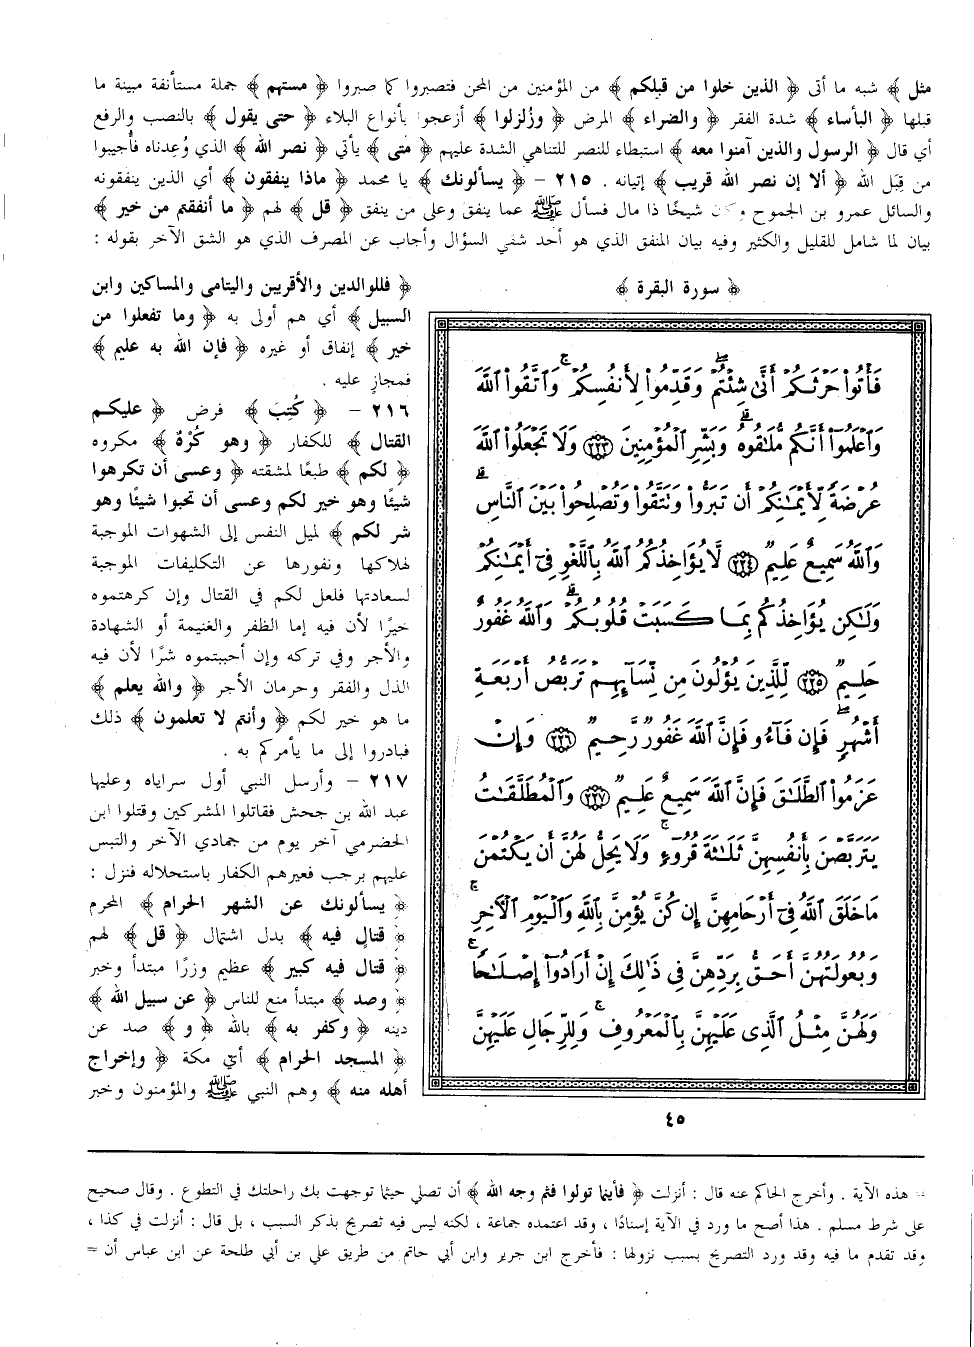 مثل ﴾ شبه ما أتى ﴿ الذين خلوا من قبلكم ﴾ من المؤمنين من المحن فتصبروا كما صبروا ﴿ مستهم ﴾ جملة مستأنفة مبينة ما
قبلها ﴿ البأساء ﴾ شدة الفقر ﴿ والضراء ﴾ المرض ﴿ وزُلزلوا ﴾ أزعجوا بأنواع البلاء ﴿ حتى يقول ﴾ بالنصب والرفع
أي قال ﴿ الرسول والذين آمنوا معه ﴾ استبطاء للنصر للتناهي الشدة عليهم ﴿ متى ﴾ يأتي ﴿ نصر الله ﴾ الذي وُعدناه فأجيبوا
من قِبَل الله ﴿ ألا إن نصر الله قريب ﴾ إتيانه . ٢١٥ – ﴿ يسألونك ﴾ يا محمد ﴿ ماذا ينفقون ﴾ أي الذين ينفقونه
والسائل عمرو بن الجموح وكان شيخًا ذا مال فسأل ﷺ عما ينفق وعلى من ينفق ﴿ قل ﴾ لهم ﴿ ما أنفقتم من خير ﴾
بيان لما شامل للقليل والكثير وفيه بيان المنفق الذي هو أحد شقي السؤال وأجاب عن المصرف الذي هو الشق الآخر بقوله :
﴿ سورة البقرة ﴾
فَأْتُوا۟ حَرْثَكُمْ أَنَّىٰ شِئْتُمْ ۖ وَقَدِّمُوا۟ لِأَنفُسِكُمْ ۚ وَٱتَّقُوا۟ ٱللَّهَ
وَٱعْلَمُوٓا۟ أَنَّكُم مُّلَـٰقُوهُ ۗ وَبَشِّرِ ٱلْمُؤْمِنِينَ ٢٢٣ وَلَا تَجْعَلُوا۟ ٱللَّهَ
عُرْضَةً لِّأَيْمَـٰنِكُمْ أَن تَبَرُّوا۟ وَتَتَّقُوا۟ وَتُصْلِحُوا۟ بَيْنَ ٱلنَّاسِ ۗ
وَٱللَّهُ سَمِيعٌ عَلِيمٌ ٢٢٤ لَّا يُؤَاخِذُكُمُ ٱللَّهُ بِٱللَّغْوِ فِىٓ أَيْمَـٰنِكُمْ
وَلَـٰكِن يُؤَاخِذُكُم بِمَا كَسَبَتْ قُلُوبُكُمْ ۗ وَٱللَّهُ غَفُورٌ
حَلِيمٌ ٢٢٥ لِّلَّذِينَ يُؤْلُونَ مِن نِّسَآئِهِمْ تَرَبُّصُ أَرْبَعَةِ
أَشْهُرٍ ۖ فَإِن فَآءُو فَإِنَّ ٱللَّهَ غَفُورٌ رَّحِيمٌ ٢٢٦ وَإِنْ
عَزَمُوا۟ ٱلطَّلَـٰقَ فَإِنَّ ٱللَّهَ سَمِيعٌ عَلِيمٌ ٢٢٧ وَٱلْمُطَلَّقَـٰتُ
يَتَرَبَّصْنَ بِأَنفُسِهِنَّ ثَلَـٰثَةَ قُرُوٓءٍ ۚ وَلَا يَحِلُّ لَهُنَّ أَن يَكْتُمْنَ
مَا خَلَقَ ٱللَّهُ فِىٓ أَرْحَامِهِنَّ إِن كُنَّ يُؤْمِنَّ بِٱللَّهِ وَٱلْيَوْمِ ٱلْـَٔاخِرِ ۚ
وَبُعُولَتُهُنَّ أَحَقُّ بِرَدِّهِنَّ فِى ذَٰلِكَ إِنْ أَرَادُوٓا۟ إِصْلَـٰحًا ۚ
وَلَهُنَّ مِثْلُ ٱلَّذِى عَلَيْهِنَّ بِٱلْمَعْرُوفِ ۚ وَلِلرِّجَالِ عَلَيْهِنَّ
٤٥
﴿ فللوالدين والأقربين واليتامى والمساكين وابن
السبيل ﴾ أي هم أولى به ﴿ وما تفعلوا من
خير ﴾ إنفاق أو غيره ﴿ فإن الله به عليم ﴾
فمجازٍ عليه .
٢١٦ – ﴿ كُتِبَ ﴾ فرض ﴿ عليكم
القتال ﴾ للكفار ﴿ وهو كُرْهٌ ﴾ مكروه
﴿ لكم ﴾ طبعًا لمشقته ﴿ وعسى أن تكرهوا
شيئًا وهو خير لكم وعسى أن تحبوا شيئًا وهو
شر لكم ﴾ لميل النفس إلى الشهوات الموجبة
لهلاكها ونفورها عن التكليفات الموجبة
لسعادتها فلعل لكم في القتال وإن كرهتموه
خيرًا لأن فيه إما الظفر والغنيمة أو الشهادة
والأجر وفي تركه وإن أحببتموه شرًا لأن فيه
الذل والفقر وحرمان الأجر ﴿ والله يعلم ﴾
ما هو خير لكم ﴿ وأنتم لا تعلمون ﴾ ذلك
فبادروا إلى ما يأمركم به .
٢١٧ – وأرسل النبي أول سراياه وعليها
عبد الله بن جحش فقاتلوا المشركين وقتلوا ابن
الحضرمي آخر يوم من جمادي الآخر والتبس
عليهم برجب فعيرهم الكفار باستحلاله فنزل :
﴿ يسألونك عن الشهر الحرام ﴾ المحرم
﴿ قتال فيه ﴾ بدل اشتمال ﴿ قل ﴾ لهم
﴿ قتال فيه كبير ﴾ عظيم وزرًا مبتدأ وخبر
﴿ وصد ﴾ مبتدأ منع للناس ﴿ عن سبيل الله ﴾
دينه ﴿ وكفر به ﴾ بالله ﴿ و ﴾ صد عن
﴿ المسجد الحرام ﴾ أي مكة ﴿ وإخراج
أهله منه ﴾ وهم النبي ﷺ والمؤمنون وخبر
= هذه الآية . وأخرج الحاكم عنه قال : أنزلت ﴿ فأينما تولوا فثم وجه الله ﴾ أن تصلي حيثما توجهت بك راحلتك في التطوع . وقال صحيح
على شرط مسلم . هذا أصح ما ورد في الآية إسنادًا ، وقد اعتمده جماعة ، لكنه ليس فيه تصريح بذكر السبب ، بل قال : أنزلت في كذا ،
وقد تقدم ما فيه وقد ورد التصريح بسبب نزولها : فأخرج ابن جرير وابن أبي حاتم من طريق علي بن أبي طلحة عن ابن عباس أن =